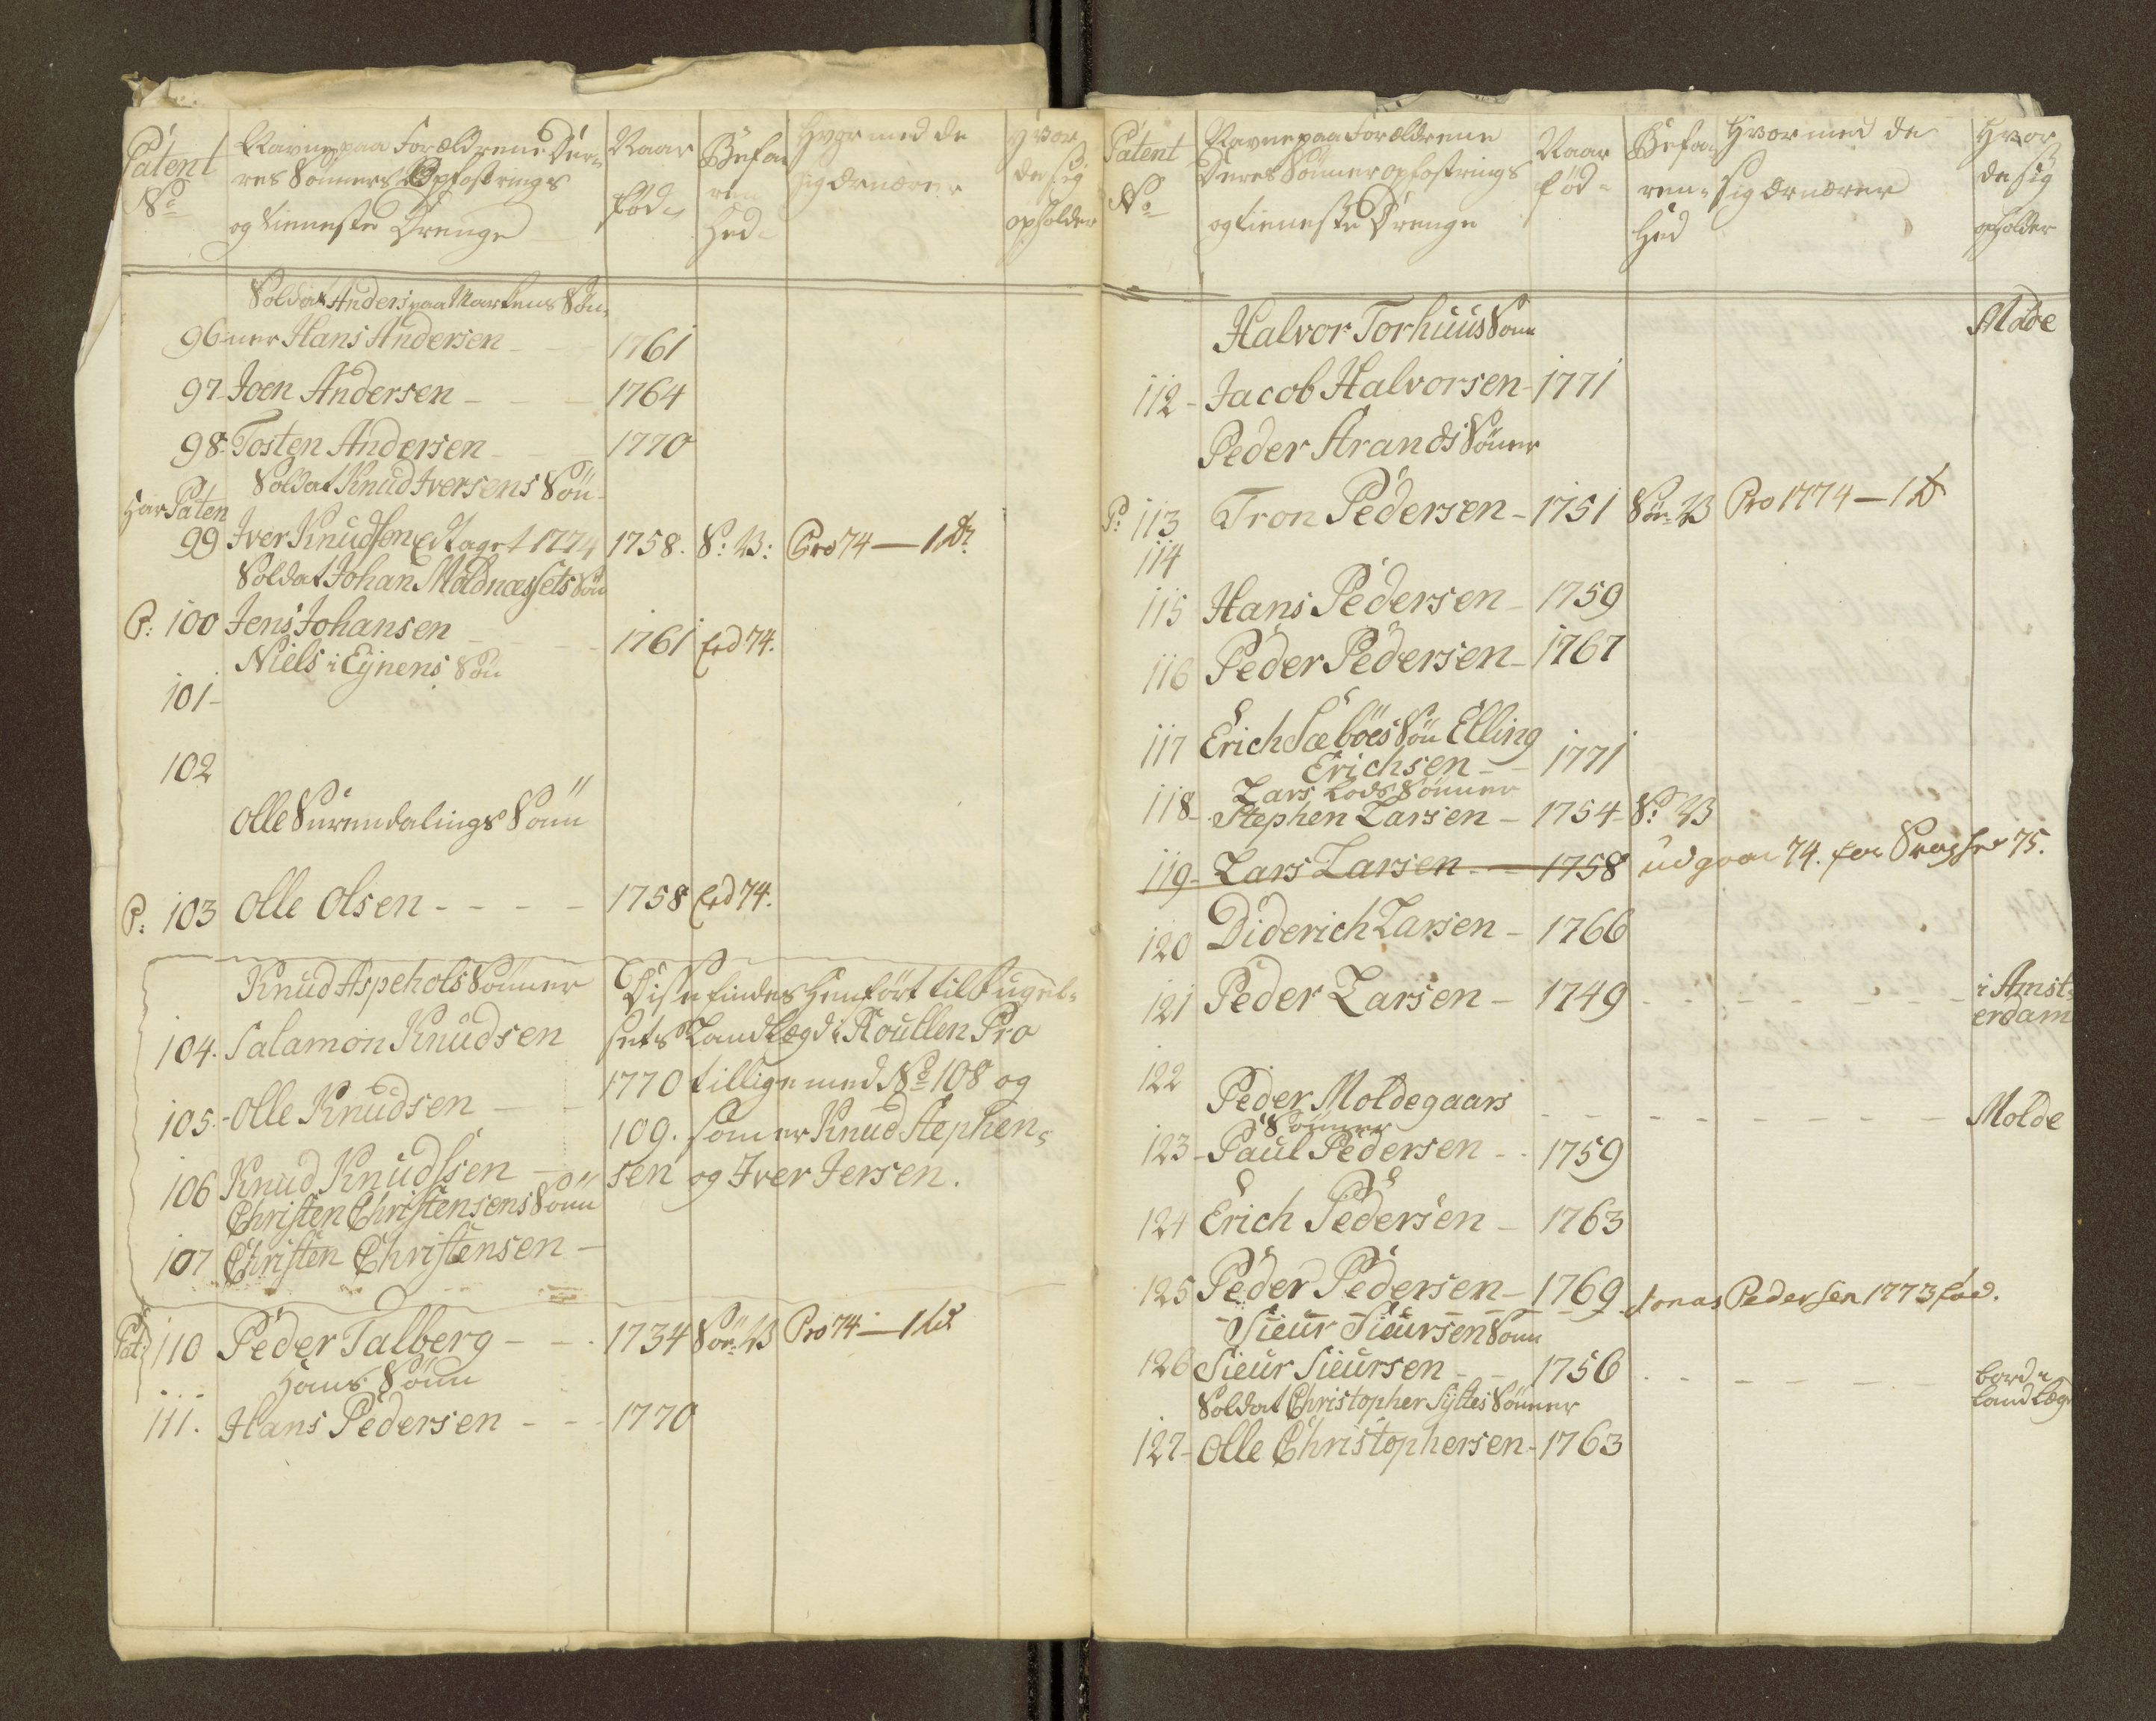 Patent
No
Navne paa Forældrene De¬
res Sønners Opfostrings
og tieneste Drenge
Naar
fød
Befa
ren
Hed
Hvormed de
sig ærnærer
Hvor
de sig
opholder
Soldat Anders paa Markens Søn¬
96 ner Hans Andersen - - 1761
97 Joen Andersen - - - 1764
98 Tosten Andersen - 1770
Soldat Knud Iversens Søn
Har Paten
99 Iver Knudsen Edtaget 1774 1758. S: B: Pro 74 — 1
Soldat Johan Maldnæssets Søn
P: 100 Jens Johansen - - - 1761 Eed 74.
Niels i Eynens Søn
101 -
102
Olle Surendalings Sønn
P: 103 Olle Olsen - - - - 1758 Eed 74.
Knud Aspehols Sønner
104. Salamon Knudsen
105. - Olle Knudsen -
106 Knud Knudsen -
Christen Christensens Sønn
107 Christen Christensen -
Disse findes henført til Fugel¬
sets Landlægd i Roullen Pro
1770 tillige med No 108 og
109. som er Knud Stephen¬
sen og Iver Jersen.
Pat: 110 Peder Talberg - - - 1734 Søe: B Pro 74 — 1
Hans Sønn
111. Hans Pedersen - - - 1770
Patent
No
Navne paa Forældrene
Deres Sønner opfostrings
og tieneste Drenge
Naar
fød
Befa
ren
Hed
Hvormed de
sig ærnærer
Hvor
de sig
opholder
Halvor Torhuus Sønn Molde
112 - Jacob Halvorsen - 1771
Peder Strands Sønner
P: 113 Tron Pedersen - 1751 Søe: B Pro 1774 — 1
114
115 Hans Pedersen - 1759
116 Peder Pedersen - 1767
117 Erich Sæbøes Søn Elling
Erichsen - - 1771
Lars Lods Sønner
118 - Stephen Larsen - 1754 - S: B
119 - Lars Larsen - 1758 udgaar 74. 75.
120 Diderich Larsen - 1766
121 Peder Larsen - 1749 - - - - - - - i Amst¬
erdam
122
Peder Moldegaars - - - - - - - - - Molde
Sønner
123 - Paul Pedersen - - 1759
124 Erich Pedersen - 1763
125 Peder Pedersen - 1769 Jonas Pedersen 1773 fød.
Sieur Sieursen Sønn
126 Sieur Sieursen - - 1756 - - - - - - - bord¬
Landlæg
Soldat Christopher Syltes Sønner
127 - Olle Christophersen - 1763